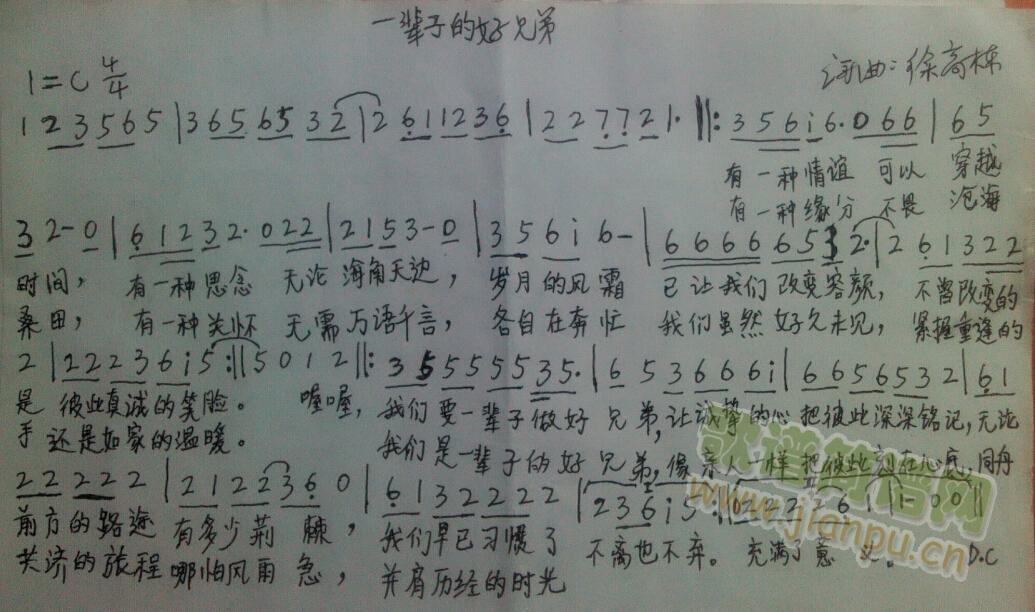 一辈子的好兄弟
1=C 4/4
词曲:徐高栋
1 2 3 5 6 5 | 3 6 5 6 5 3 2 | 2 6 1 1 2 3 6 | 2 2 7 7 2 1· ‖: 3 5 6 i 6· 0 6 6 | 6 5
有一种情谊 可以 穿越
有一种缘分 不畏 沧海
3 2 - 0 | 6 1 2 3 2· 0 2 2 | 2 1 5 3 - 0 | 3 5 6 i 6 - | 6 6 6 6 6 5 3 2· | 2 6 1 3 2 2
时间, 有一种思念 无论 海角天边, 岁月的风霜 已让我们改变容颜, 不曾改变的
桑田, 有一种关怀 无需 万语千言, 各自在奔忙 我们虽然好久未见, 紧握重逢的
2 | 2 2 2 3 6 i 5 :‖ 5 0 1 2 ‖: 3 5 5 5 5 5 3 5· | 6 5 3 6 6 6 i | 6 6 5 6 5 3 2 | 6 1
是 彼此真诚的笑脸。 喔喔, 我们要一辈子做好兄弟,让诚挚的心把彼此深深铭记,无论
手 还是如家的温暖。 我们是一辈子的好兄弟,像亲人一样把彼此刻在心底,同舟
2 2 2 2 2 | 2 1 2 2 3 6 0 | 6 1 3 2 2 2 2 | 2 3 6 i 5 :‖ 0 2 2 2 2 6 1 | 1 - 0 0 ‖
前方的路途 有多少荆棘, 我们早已习惯了 不离也不弃。 充满了意义。 D.C
共济的旅程 哪怕风雨急, 并肩历经的时光
歌谱简谱网
www.jianpu.cn